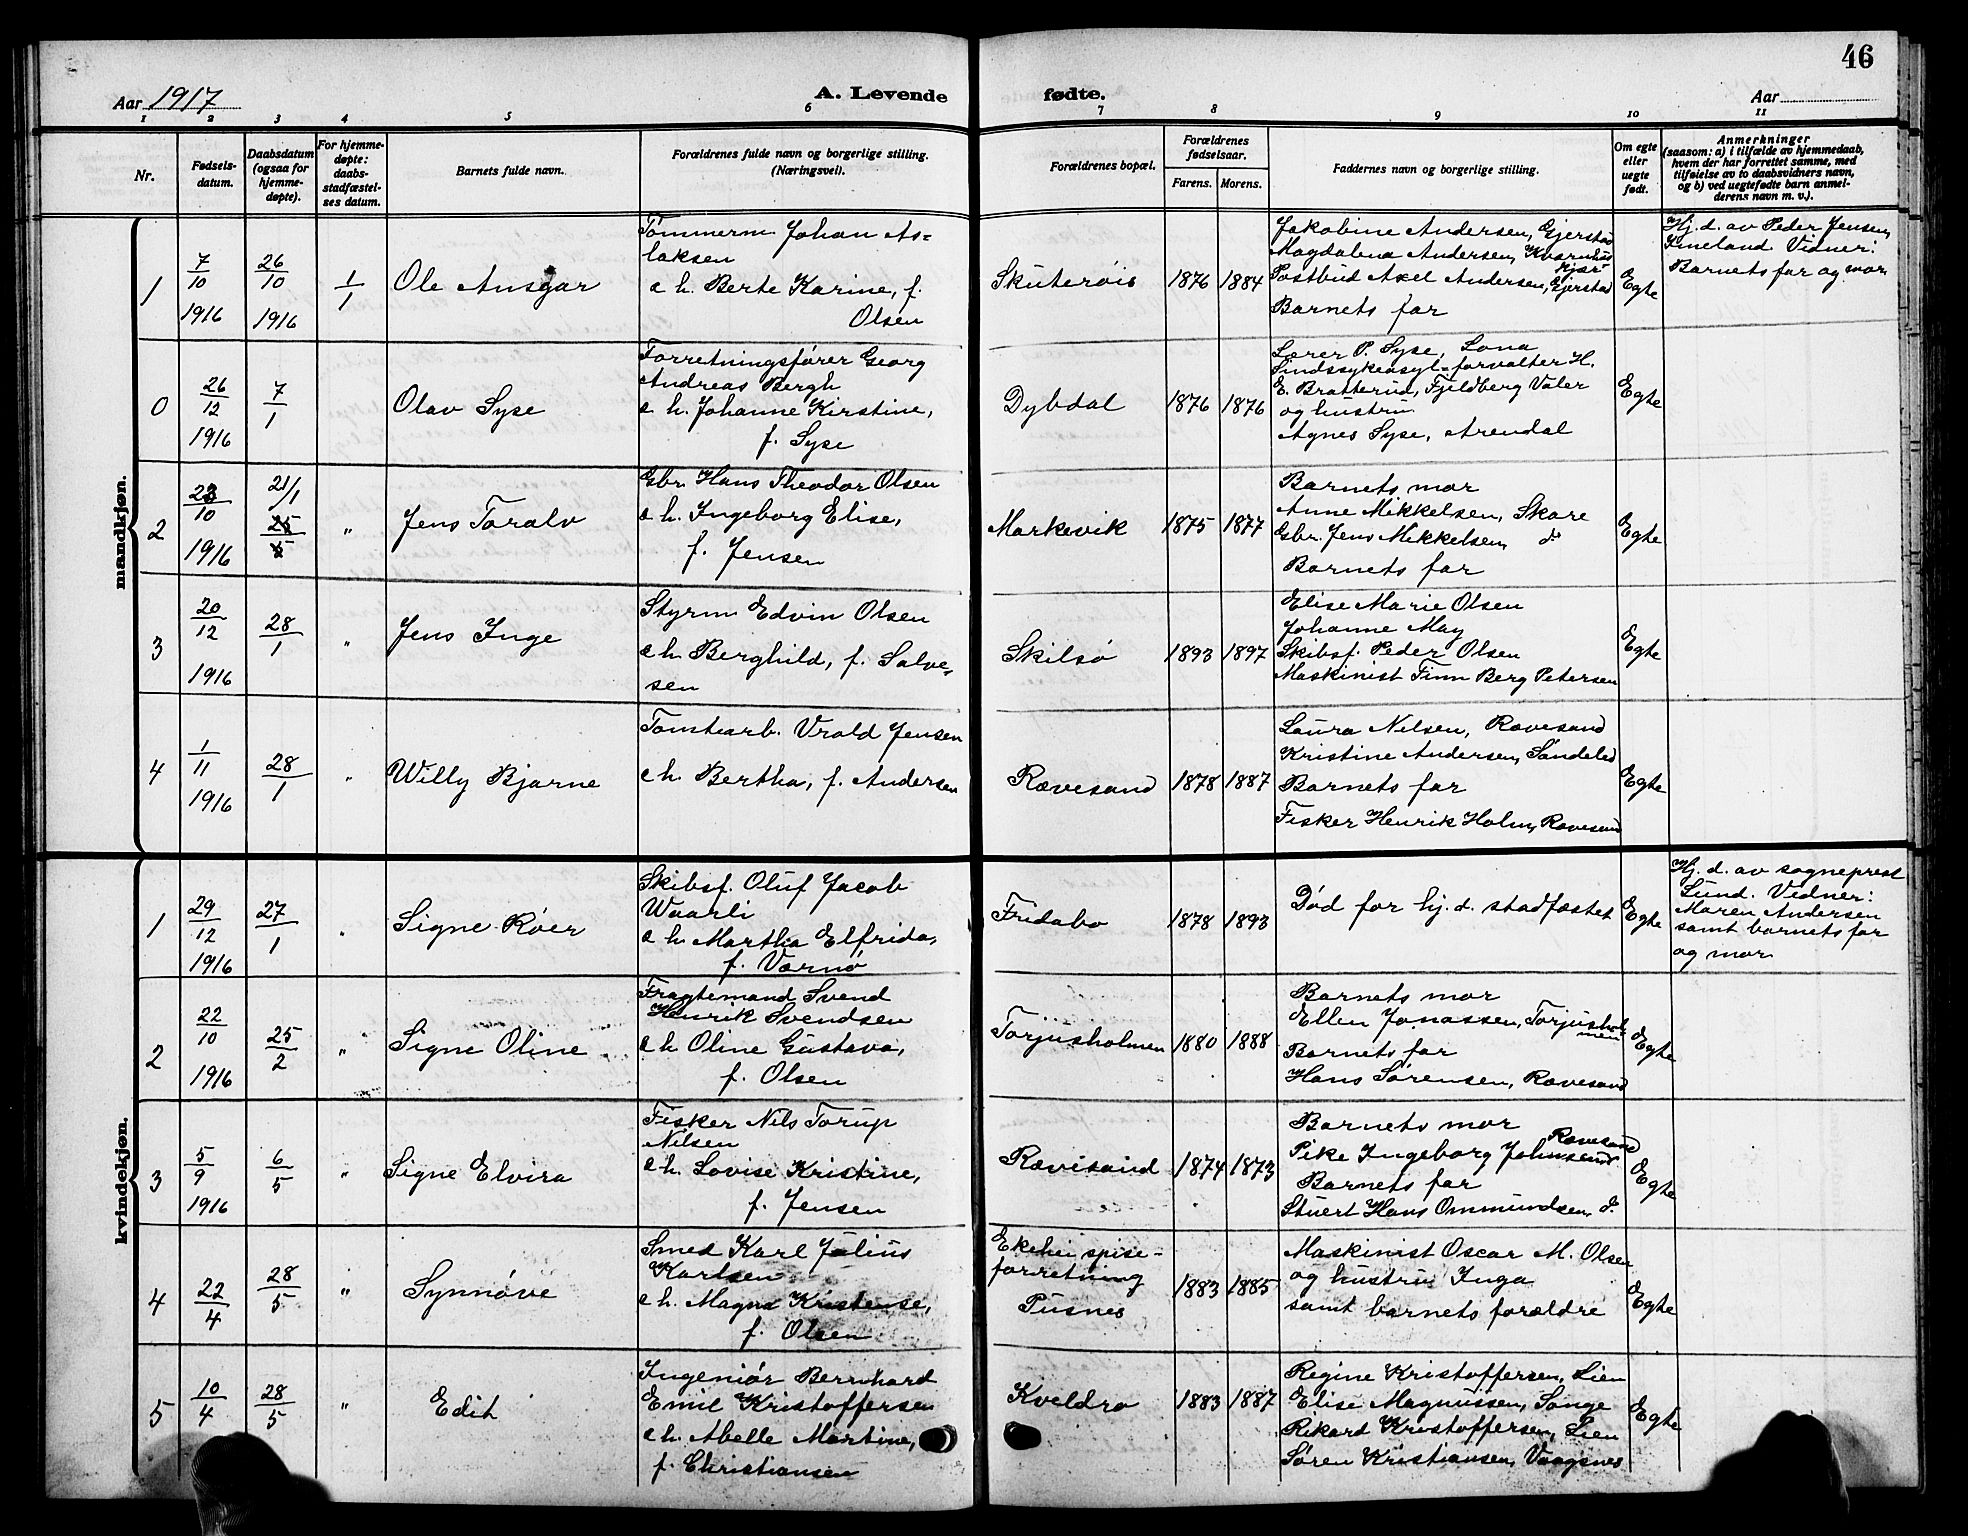 46
Aar 1917
A. Levende fødte.
Aar
1 2 3 4 5 6 7 8 9 10 11
Nr.
Fødselsdatum.
Daabsdatum (ogsaa for hjemmedøpte).
For hjemmedøpte: daabsstadfæstelses datum.
Barnets fulde navn.
Forældrenes fulde navn og borgerlige stilling. (Næringsvei).
Forældrenes bopæl.
Forældrenes fødselsaar.
Farens. Morens.
Faddernes navn og borgerlige stilling.
Om egte eller uegte født.
Anmerkninger
(saasom: a) i tilfælde av hjemmedaab,
hvem der har forrettet samme, med
tilføielse av to daabsvidners navn,
og b) ved uegtefødte barn anmelderens navn m. v.).
mandkjøn.
1
7/10 1916
26/10 1916
1/1
Ole Ansgar
Tømmerm Johan As=
laksen
e h. Berte Karine, f.
Olsen
Skuterøis
1876 1884
Jakobine Andersen, Gjerstad
Magdalena Andersen, Kvernhus
kjær
Postbud Axel Andersen, Gjerstad
Barnets far
Egte
Hj. d. av Peder Jensen,
Fineland. Vidner:
Barnets far og mor
0
26/12 1916
7/1
Olav Syse
Forretningsfører Georg
Andreas Bergh
e h. Johanne Kirstine,
f. Syse
Dybdal
1876 1876
Lærer P. Syse, Lona
Sindssykeasyl=forvalter H.
E. Bratterud, Fjeldberg Våler
og hustru
Agnes Syse, Arendal
Egte
2
23/10 1916
21/1
25/5
"
Jens Toralv
Gbr. Hans Theodor Olsen
e h. Ingeborg Elise,
f. Jensen
Markevik
1875 1877
Barnets mor
Anne Mikkelsen, Skare
Gbr. Jens Mikkelsen, d.
Barnets far
Egte
3
20/12 1916
28/1
"
Jens Inge
Styrm Edvin Olsen
e h. Berghild, f. Salve-
sen
Skilsø
1893 1897
Elise Marie Olsen
Johanne May
Skibsf. Peder Olsen
Maskinist Finn Berg Petersen
Egte
4
1/11 1916
28/1
"
Willy Bjarne
Tomtearb. Vrold Jensen
e h. Bertha, f. Andersen
Rævesand
1878 1887
Laura Nilsen, Rævesand
Kristine Andersen, Søndeled
Barnets far
Fisker Henrik Holm, Rævesand
Egte
kvindekjøn.
1
29/12 1916
27/1
"
Signe Røer
Skibsf. Oluf Jacob
Waarli
e h. Martha Elfrida,
f.Værnø
Fridabo
1878 1893
Død før hj. d. stadfæstet
Egte
Hj. d. av sogneprest
Lund. Vidner:
Maren Andersen
samt barnets far
og mor
2
22/10 1916
25/2
"
Signe Oline
Fragtemand Svend
Henrik Svendsen
e h Oline Gustava,
f. Olsen
Torjusholmen
1880 1888
Barnets mor
Ellen Jonassen, Torjushol
men
Barnets far
Hans Sørensen, Rævesand
Egte
3
5/9 1916
6/5
"
Signe Elvira
Fisker Nils Torup
Nilsen
e h. Lovise Kristine,
f. Jensen
Rævesand
1874 1873
Barnets mor
Rævesand
Pike Ingeborg Johnsen
Barnets far
Stuert Hans Ommundsen, d.
Egte
4
22/4
28/5
"
Synnøve
Smed Karl Julius
Karlsen
e h. Magna Kristense,
f. Olsen
Ekehei spise-
forretning
Pusnes
1883 1885
Maskinist Oscar M. Olsen
og hustru Inga
samt barnets forældre
Egte
5
10/4
28/5
"
Edit
Ingeniør Bernhard
Emil Kristoffersen
e h. Abelle Martine,
f. Christiansen
Kveldro
1883 1887
Regine Kristoffersen, Lien
Elise Magnussen, Songe
Rikard Kristoffersen, Lien
Søren Kristiansen, Vaagsnes
Egte